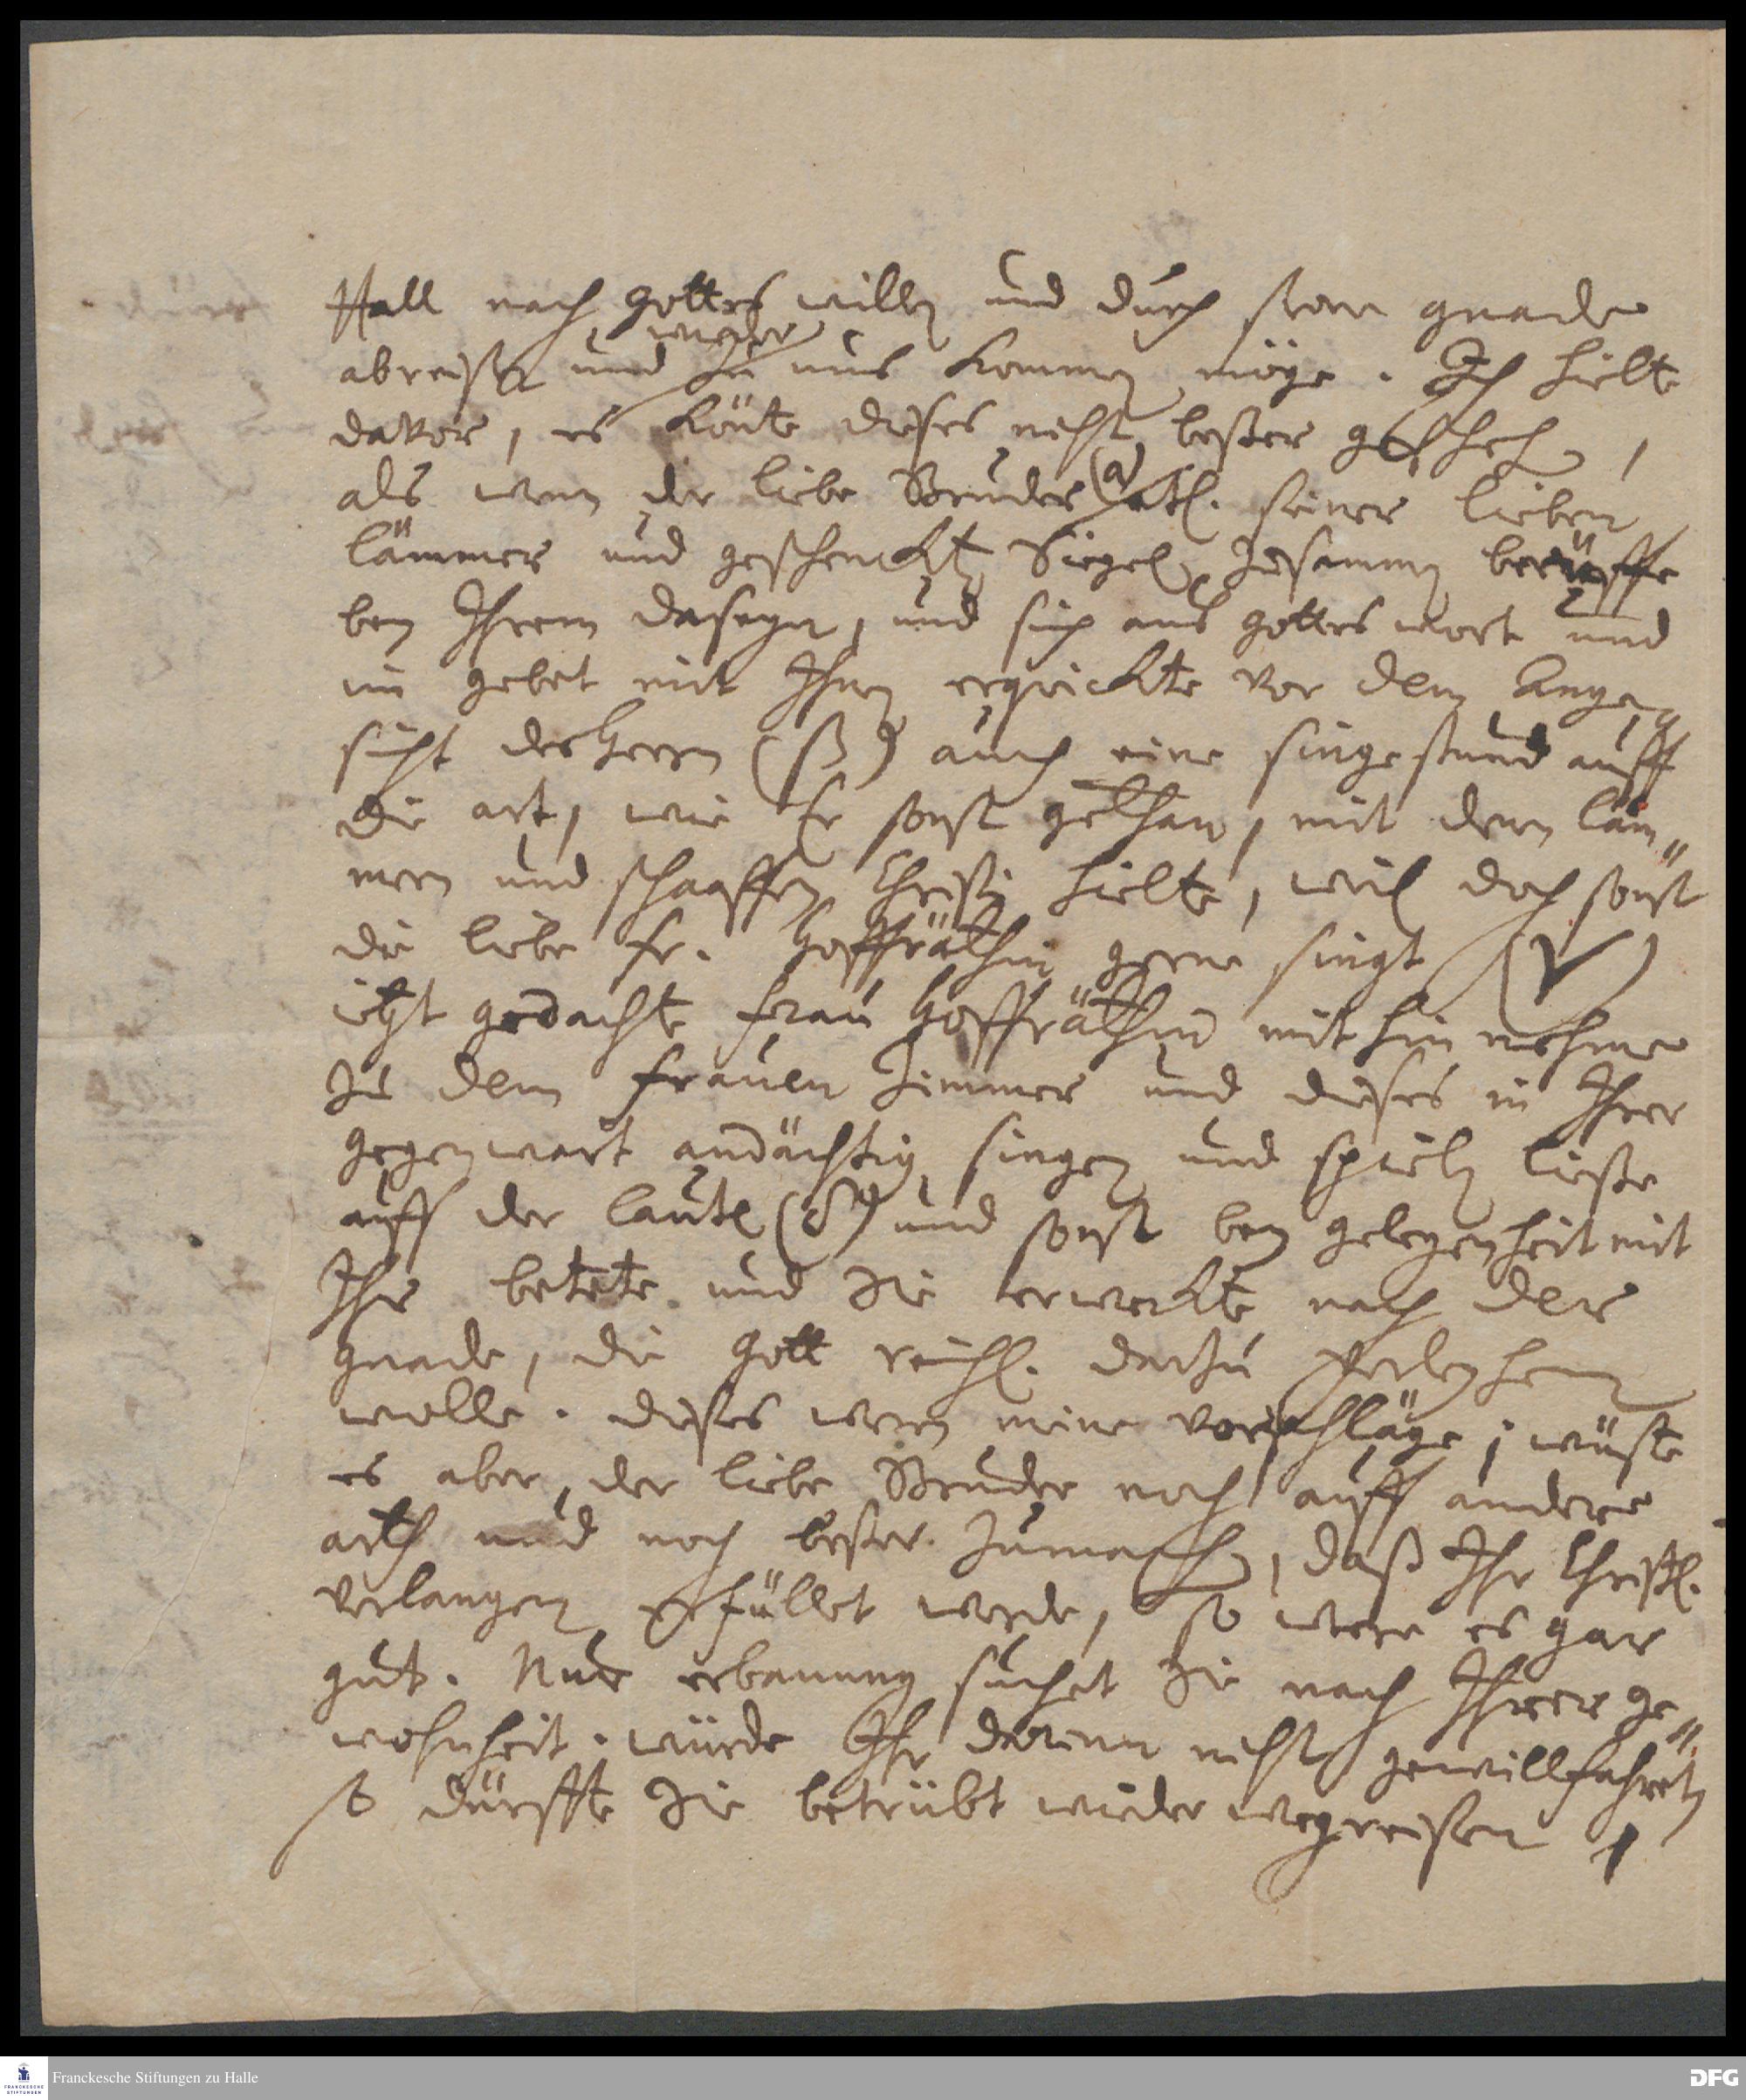 Hall nach Gottes willen und durch seine gnade
wieder
abreisen und zu uns kommen möge. Ich hielte
davor, es könte dieses nicht besser geschehen,
als wenn der liebe Bruder (α) etl. seiner lieben
lämmer und geschenckten Siegel zusammen beruffte
bey Ihrem daseyn, und sich aus Gottes wort und
im gebet mit Ihnen erquickte vor dem Ange„
sicht des Herrn (β) auch eine singestund auff
die art, wie Er sonst gethan, mit denen läm„
mern und schaaffen Christi hielte, weil doch sonst
die liebe Fr. Hoffräthin gerne singt (γ)
itzt gedachte Frau Hoffräthin mit hin nehme
zu dem Frauen Zimmer und dieses in Ihrer
gegenwart andächtig singen und spielen liesse
auff der laute (δ) und sonst bey gelegenheit mit
Ihr betete und Sie erweckte nach der
gnade, die Gott reichl. darzu verleyhen
wolle. Dieses weren meine vorschläge; wüste
es aber der liebe Bruder noch auff andere
arth und noch besser zumachen, daß Ihr Christl.
verlangen erfüllet werde, so were es gar
gut. Nur erbauung suchet Sie nach Ihrer ge„
wohnheit. würde Ihr darinn nicht gewillfahret,
so dürffte Sie betrübt wieder wegreisen
Franckesche Stiftungen zu Halle
FRANCKESCHE STIFTUNGEN
DFG